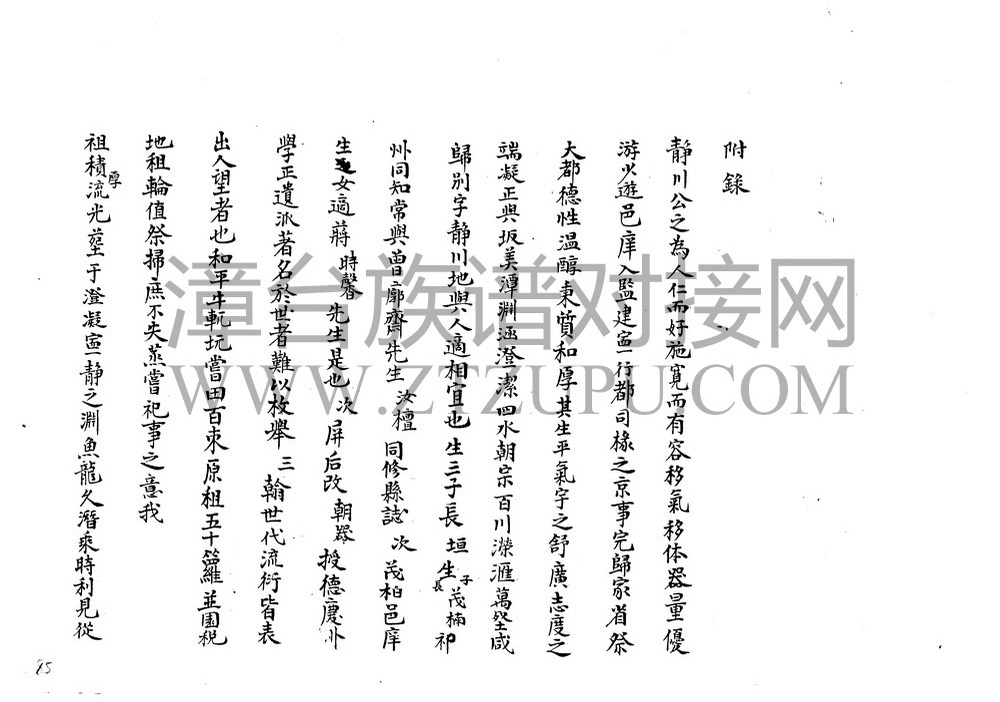 附錄
靜川公之為人仁而好施寬而有容移氣移体器量優
游少遊邑庠入監建寧行都司椽之京事完歸家省祭
大都德性温醇秉質和厚其生平氣宇之舒廣志度之
端凝正與坂美潭淵涵澄潔四水朝宗百川濴滙萬壑咸
歸别字靜川地與人適相宜也生三子長垣生長子茂楠祁
州同知常與曾廓齋先生汝檀同修縣誌次茂柏邑庠
生女適蔣時馨先生是也次屏后改朝器授德慶州
學正遺派著名於世者難以枚舉三翰世代流衍皆表
出人望者也和平牛軛玩嘗田百束原租五十籮並園稅
地租輪值祭掃庶不失蒸嘗祀事之意我
祖積厚流光塟于澄凝寧靜之淵魚龍久潛乘時利見從
85
漳台族谱对接网
WWW.ZTZUPU.COM